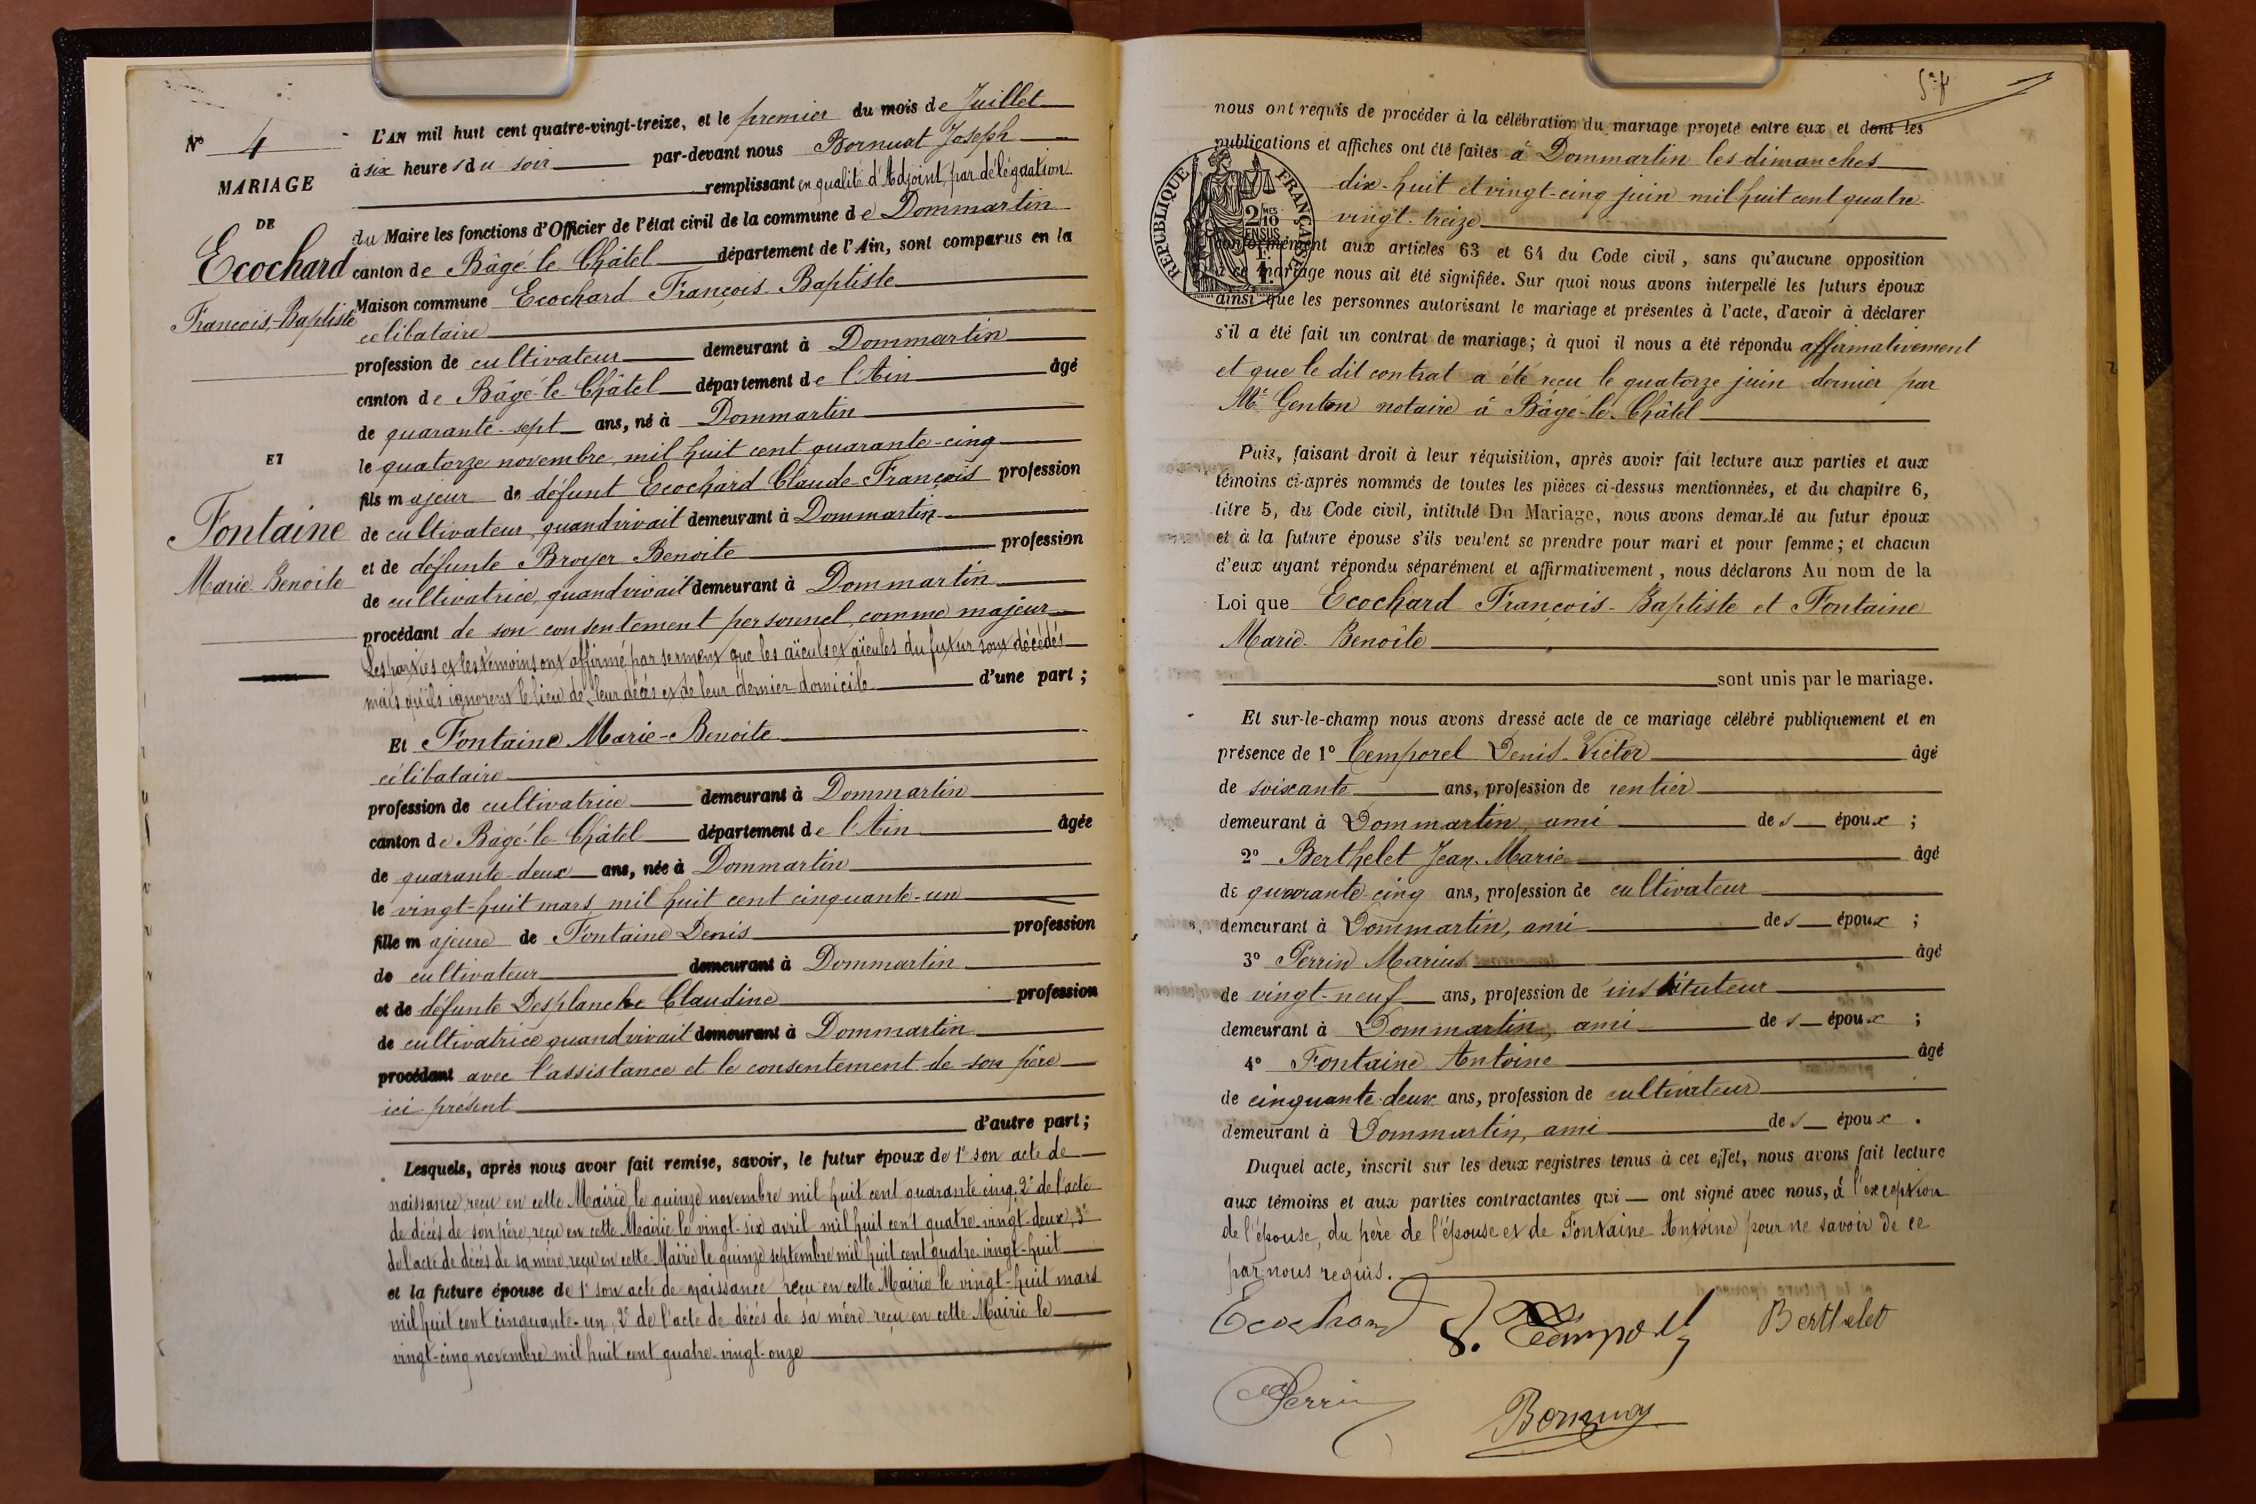 Nº 4
MARIAGE
DE
Ecochard
François-Baptiste
ET
Fontaine
Marie-Benoite
L'AN mil huit cent quatre-vingt-treize, et le premier du mois de Juillet
à six heures du soir par-devant nous Bornuat Joseph
remplissant en qualité d'Adjoint, par délégation
du Maire les fonctions d'Officier de l'état civil de la commune de Dommartin
canton de Bâgé-le-Châtel département de l'Ain, sont comparus en la
Maison commune Ecochard François-Baptiste
célibataire
profession de cultivateur demeurant à Dommartin
canton de Bâgé-le-Châtel département de l'Ain âgé
de quarante-sept ans, né à Dommartin
le quatorze novembre mil huit cent quarante-cinq
fils majeur de défunt Ecochard Claude-François profession
de cultivateur, quand vivait demeurant à Dommartin
et de défunte Broyer Benoite profession
de cultivatrice, quand vivait demeurant à Dommartin
procédant de son consentement personnel, comme majeur
Les parties et les témoins ont affirmé par serment que les aïeuls et aïeules du futur sont décédés
mais qu'ils ignorent le lieu de leur décès et de leur dernier domicile d'une part ;
Et Fontaine Marie-Benoite
célibataire
profession de cultivatrice demeurant à Dommartin
canton de Bâgé-le-Châtel département de l'Ain âgée
de quarante-deux ans, née à Dommartin
le vingt-huit mars mil huit cent cinquante-un
fille majeure de Fontaine Denis profession
de cultivateur demeurant à Dommartin
et de défunte Desplanche Claudine profession
de cultivatrice quand vivait demeurant à Dommartin
procédant avec l'assistance et le consentement de son père
ici présent
d'autre part ;
Lesquels, après nous avoir fait remise, savoir, le futur époux de 1º son acte de
naissance, reçu en cette Mairie le quinze novembre mil huit cent quarante cinq, 2º de l'acte
de décès de son père, reçu en cette Mairie le vingt-six avril mil huit cent quatre-vingt-deux, 3º
de l'acte de décès de sa mère, reçu en cette Mairie le quinze septembre mil huit cent quatre-vingt-huit
et la future épouse de 1º son acte de naissance reçu en cette Mairie le vingt-huit mars
mil huit cent cinquante-un, 2º de l'acte de décès de sa mère reçu en cette Mairie le
vingt-cinq novembre mil huit cent quatre-vingt-onze
nous ont requis de procéder à la célébration du mariage projeté entre eux et dont les
publications et affiches ont été faites à Dommartin les dimanches
dix-huit et vingt-cinq juin mil huit cent quatre-
vingt-treize
RÉPUBLIQUE FRANÇAISE
2 MES
10
EN SUS
1F.
conformément aux articles 63 et 64 du Code civil, sans qu'aucune opposition
à ce mariage nous ait été signifiée. Sur quoi nous avons interpellé les futurs époux
ainsi que les personnes autorisant le mariage et présentes à l'acte, d'avoir à déclarer
s'il a été fait un contrat de mariage; à quoi il nous a été répondu affirmativement
et que le dit contrat a été reçu le quatorze juin dernier par
Mᵉ Genton notaire à Bâgé-le-Châtel
Puis, faisant droit à leur réquisition, après avoir fait lecture aux parties et aux
témoins ci-après nommés de toutes les pièces ci-dessus mentionnées, et du chapitre 6,
titre 5, du Code civil, intitulé Du Mariage, nous avons demandé au futur époux
et à la future épouse s'ils veulent se prendre pour mari et pour femme; et chacun
d'eux ayant répondu séparément et affirmativement, nous déclarons Au nom de la
Loi que Ecochard François-Baptiste et Fontaine
Marie-Benoîte
sont unis par le mariage.
Et sur-le-champ nous avons dressé acte de ce mariage célébré publiquement et en
présence de 1º Temporel Denis-Victor âgé
de soixante ans, profession de rentier
demeurant à Dommartin, ami des époux ;
2º Berthelet Jean-Marie âgé
de quarante-cinq ans, profession de cultivateur
demeurant à Dommartin, ami des époux ;
3º Perrin Marius âgé
de vingt-neuf ans, profession de instituteur
demeurant à Dommartin, ami des époux ;
4º Fontaine Antoine âgé
de cinquante-deux ans, profession de cultivateur
demeurant à Dommartin, ami des époux.
Duquel acte, inscrit sur les deux registres tenus à cet effet, nous avons fait lecture
aux témoins et aux parties contractantes qui ont signé avec nous, à l'exception
de l'épouse, du père de l'épouse et de Fontaine Antoine pour ne savoir de ce
par nous requis.
Ecochard Temporel Berthelet
Perrin Bornuat